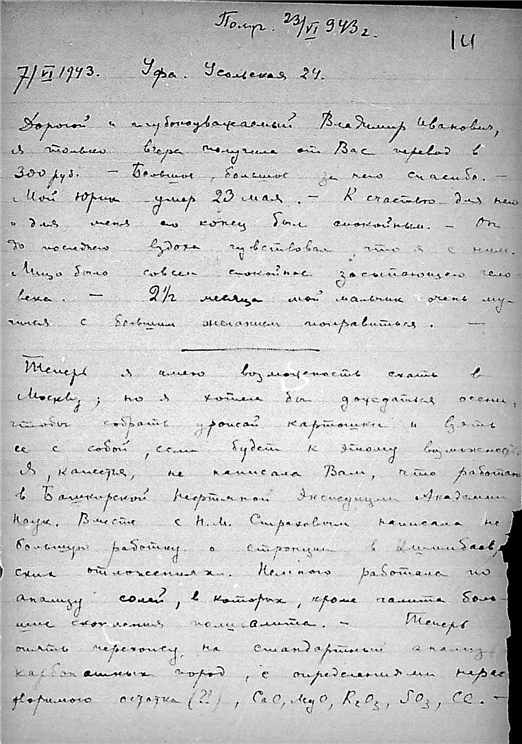 Получ. 23/VI 943 г.
14
7/VI 1943. Уфа. Усольская 24.
Дорогой и глубокоуважаемый Владимир Иванович,
я только вчера получила от Вас перевод в
300 руб. – Большое, большое за него спасибо. –
Мой Юрик умер 23 мая. – К счастью для него
и для меня его конец был спокойным. – Он
до последнего вздоха чувствовал, что я с ним.
Лицо было совсем спокойное засыпающего чело
века. – 2 1/2 месяца мой мальчик очень му-
чился с большим желанием поправиться. –
Теперь я имею возможность ехать в
Москву; но я хотела бы дождаться осени,
чтобы собрать урожай картошки и взять
ее с собой, если будет к этому возможность.
Я, кажется, не написала Вам, что работаю
в Башкирской Нефтяной Экспедиции Академии
Наук. Вместе с Н.М. Страховым написала не
большую работку о стронции в Ишимбаев,
ских отложениях. Немного работала по
анализу солей, в которых, кроме галита боль-
шие скопления полигалита. – Теперь
опять перехожу на стандартный анализ
карбонатных пород, с определениями нерас
творимого остатка (2!), CaO, MgO, R2O3, SO3, Cl. –